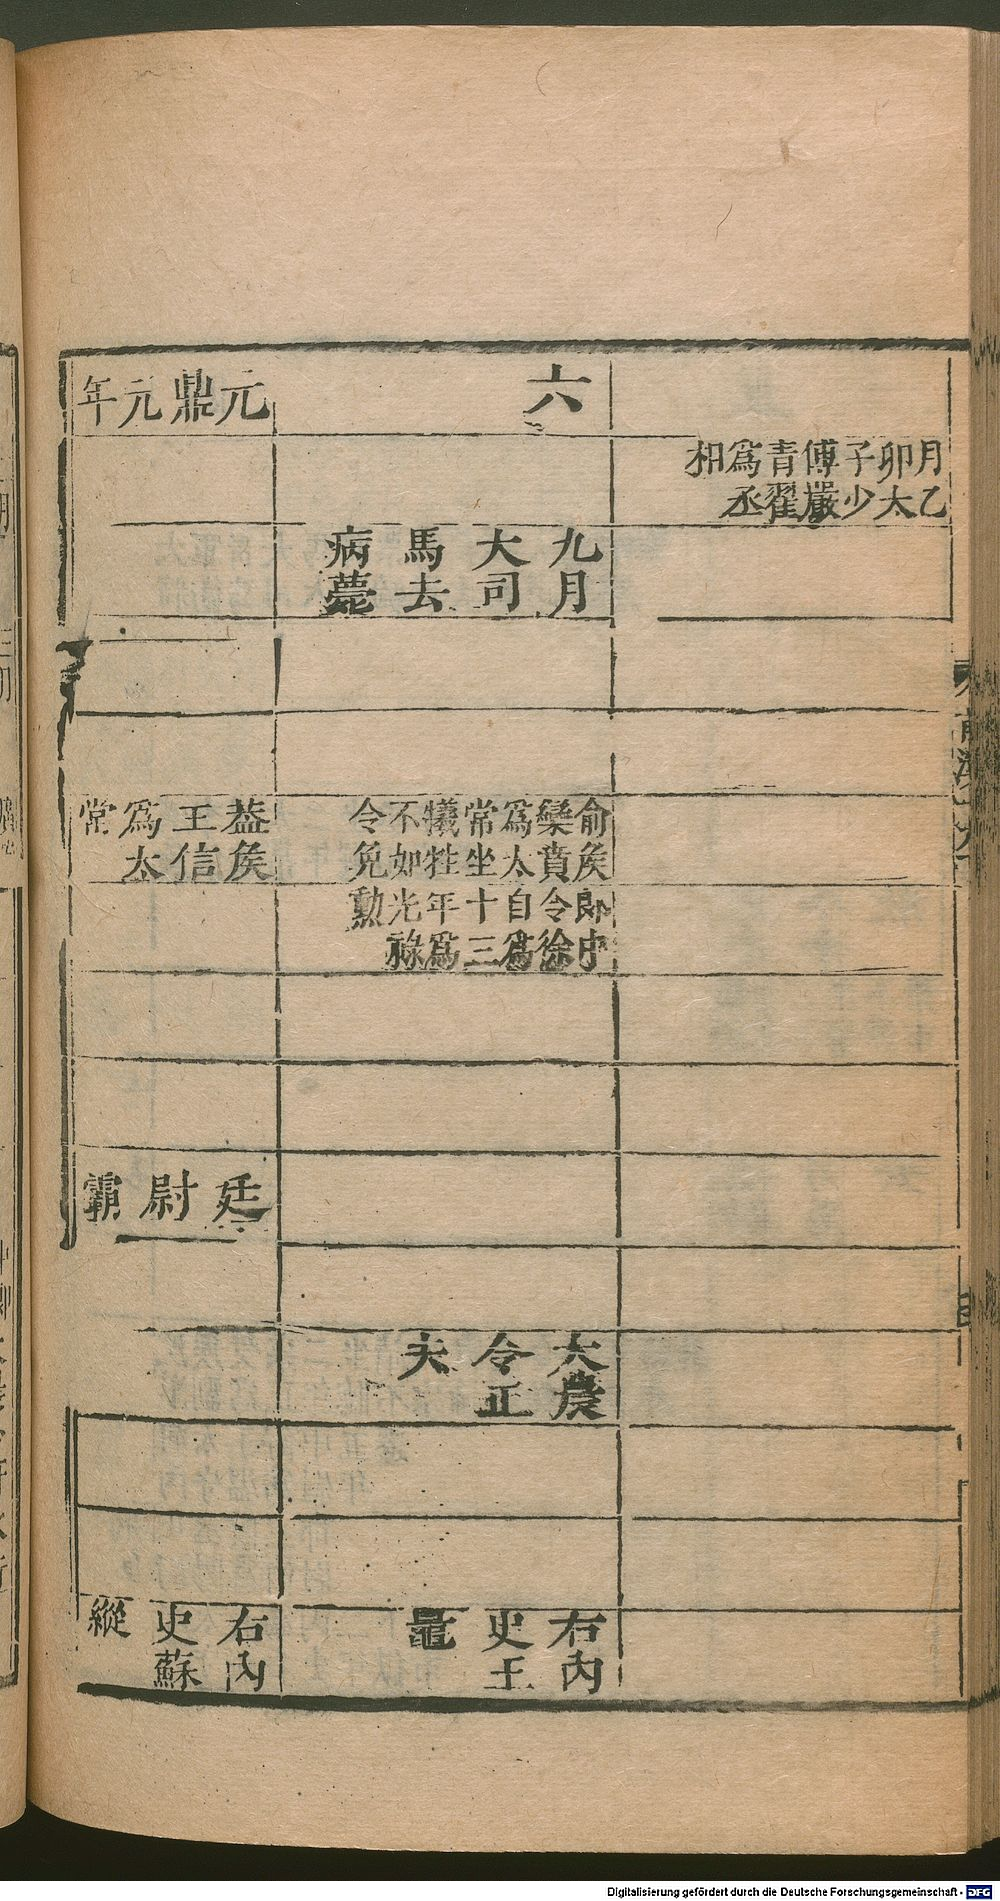 月乙
卯太
子少
傅嚴
青翟
爲丞
相
六
九月
大司
馬去
病薨
俞侯
欒賁
爲太
常坐
犧牲
不如
令免
郎中
令徐
自爲
十三
年爲
光祿
勲
大農
令正
夫
右內
史王
鼂
元鼎元年
葢侯
王信
爲太
常
廷尉霸
右內
史蘇
縱
Digitalisierung gefördert durch die Deutsche Forschungsgemeinschaft - DFG